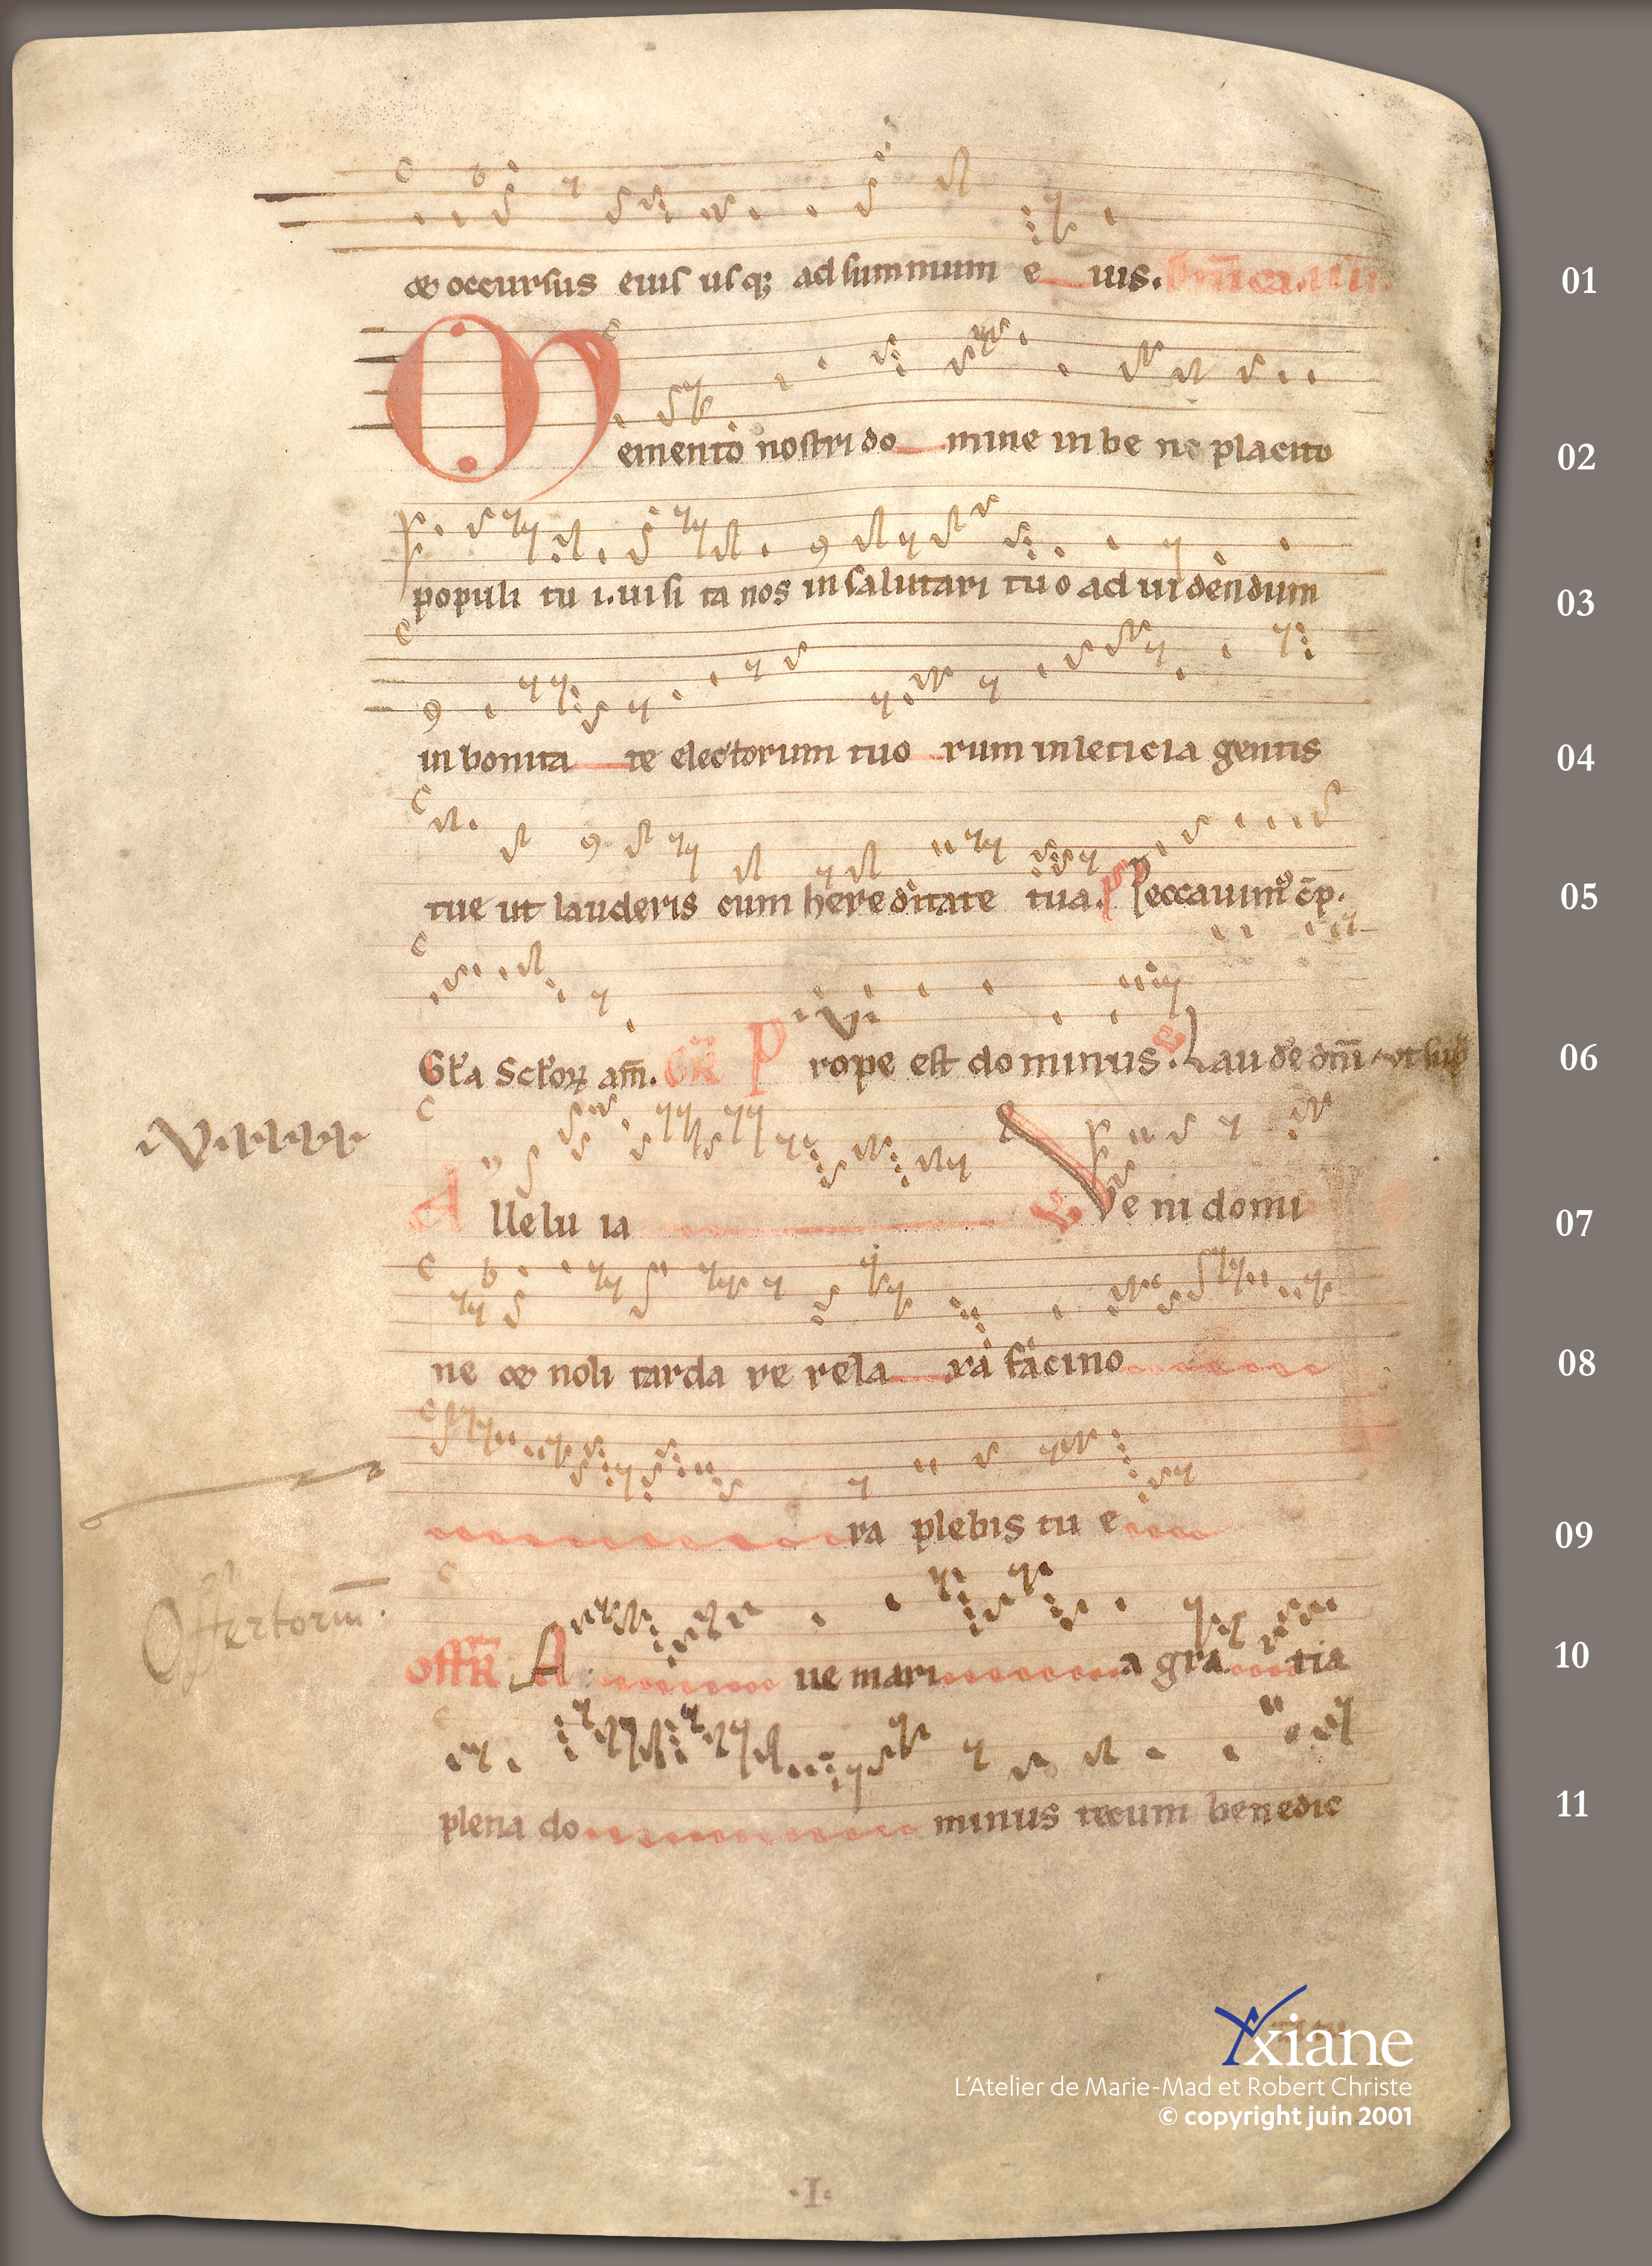 & occursus eius usq; ad summum e uis. Dn̄ica. iiii.
01
Memento nostri do mine in be ne placito
02
populi tu i. uisi ta nos in salutari tuo ad uidendum
03
in bonita te electorum tuo rum in leticia gentis
04
tue ut lauderis cum hereditate tua. ps Peccauim᷒ c̄ p.
05
Gl̃a Scl̃oꝝ am̄. GR̃ Prope est dominus. V Laude dn̄i
06
Alle lu ia V Ve ni domi
07
ne & noli tarda re rela xa facino
08
ra plebis tu e
09
Offertoriū.
OFFR̃ A ue mari a gra tia
10
plena do minus tecum benedic
11
Axiane
L'Atelier de Marie-Mad et Robert Christe
© copyright juin 2001
·I·